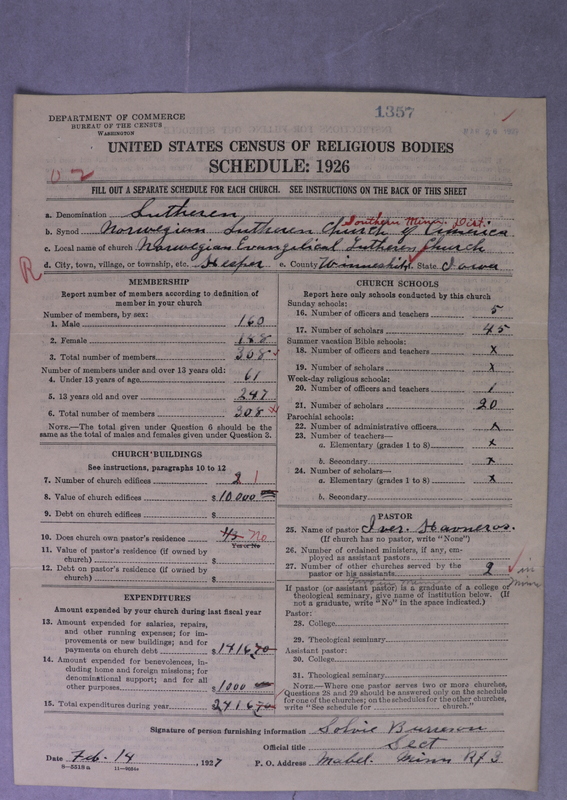 1357
DEPARTMENT OF COMMERCE
BUREAU OF THE CENSUS
WASHINGTON
UNITED STATES CENSUS OF RELIGIOUS BODIES
SCHEDULE: 1926
FILL OUT A SEPARATE SCHEDULE FOR EACH CHURCH. SEE INSTRUCTIONS ON THE BACK OF THIS SHEET
a. Denomination Lutheren
Southern Minn. Dist.
b. Synod Norwegian Lutheren Church of America
c. Local name of church Norwegian Evangelical Lutheren Church
R
d. City, town, village, or township, etc. Hesper e. County Winneshiek f. State Iowa
MEMBERSHIP
Report number of members according to definition of
member in your church
Number of members, by sex:
1. Male 160
2. Female
3. Total number of members 308
Number of members under and over 13 years old:
4. Under 13 years of age 61
5. 13 years old and over 247
6. Total number of members 308
NOTE.—The total given under Question 6 should be the
same as the total of males and females given under Question 3.
CHURCH BUILDINGS
See instructions, paragraphs 10 to 12
7. Number of church edifices 2 1
8. Value of church edifices $ 10000
9. Debt on church edifices $
10. Does church own pastor's residence No
Yes or No
11. Value of pastor's residence (if owned by
church) $
12. Debt on pastor's residence (if owned by
church) $
EXPENDITURES
Amount expended by your church during last fiscal year
13. Amount expended for salaries, repairs,
and other running expenses; for im-
provements or new buildings; and for
payments on church debt $ 1416.70
14. Amount expended for benevolences, in-
cluding home and foreign missions; for
denominational support; and for all
other purposes $ 1000
15. Total expenditures during year 2416.70
CHURCH SCHOOLS
Report here only schools conducted by this church
Sunday schools:
16. Number of officers and teachers 5
17. Number of scholars 45
Summer vacation Bible schools:
18. Number of officers and teachers x
19. Number of scholars x
Week-day religious schools:
20. Number of officers and teachers 1
21. Number of scholars 20
Parochial schools:
22. Number of administrative officers x
23. Number of teachers—
a. Elementary (grades 1 to 8) x
b. Secondary x
24. Number of scholars—
a. Elementary (grades 1 to 8) x
b. Secondary
PASTOR
25. Name of pastor Iver Havneros.
(If church has no pastor, write "None")
26. Number of ordained ministers, if any, em-
ployed as assistant pastors
27. Number of other churches served by the
pastor or his assistants 2 in Minn
Two in Minn
If pastor (or assistant pastor) is a graduate of a college or
theological seminary, give name of institution below. (If
not a graduate, write "No" in the space indicated.)
Pastor:
28. College
29. Theological seminary
Assistant pastor:
30. College
31. Theological seminary
NOTE.—Where one pastor serves two or more churches,
Questions 28 and 29 should be answered only on the schedule
for one of the churches; on the schedules for the other churches,
write "See schedule for church."
Signature of person furnishing information
Official title Sect
Date Feb. 14, 1927 P. O. Address Mabel. Minn R#3
8—5318a 11—8684a